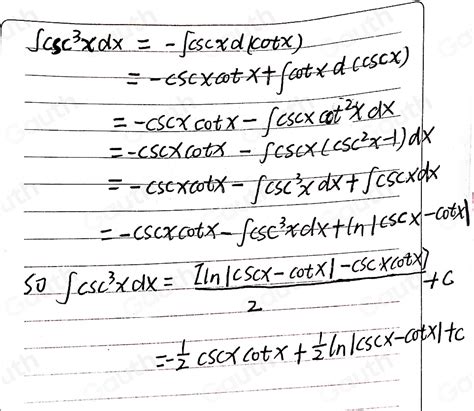 ∫csc³xdx = -∫cscxd(cotx)
= -cscxcotx+∫cotxd(cscx)
= -cscxcotx - ∫cscxcot²xdx
= -cscxcotx - ∫cscx(csc²x-1)dx
= -cscxcotx - ∫csc³xdx + ∫cscxdx
= -cscxcotx - ∫csc³xdx + ln|cscx-cotx|
so ∫csc³xdx = [ln|cscx-cotx|-cscxcotx]/2 +c
= -1/2 cscxcotx + 1/2 ln|cscx-cotx|+c